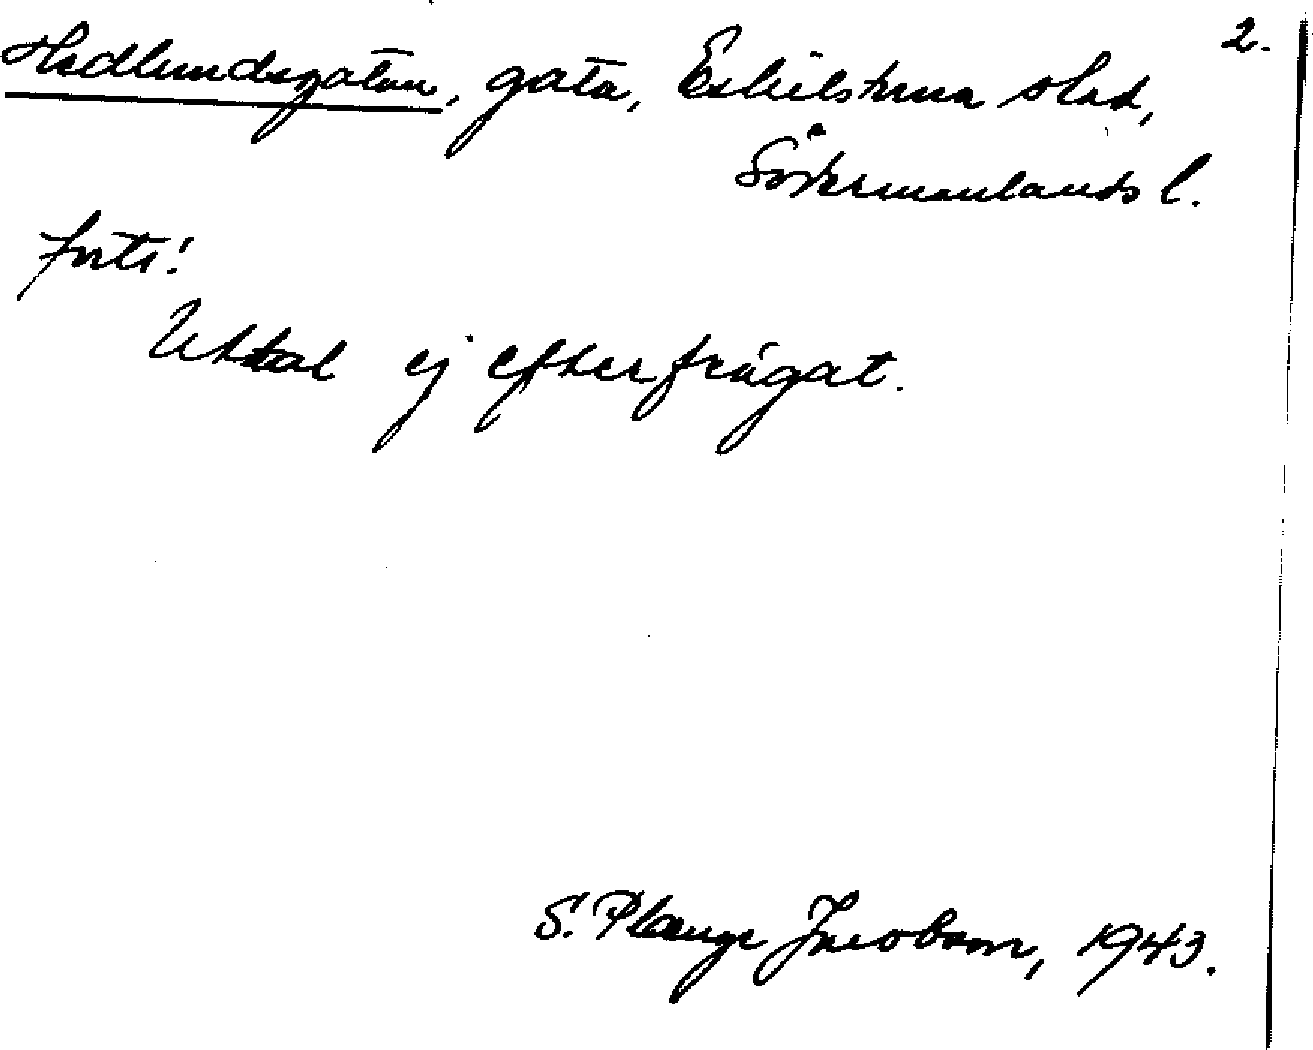 2.
Hedlundsgatan, gata, Eskilstuna stad,
Södermanlands l.
forts!
Uttal ej efterfrågat.
S. Plange Jacobson, 1943.